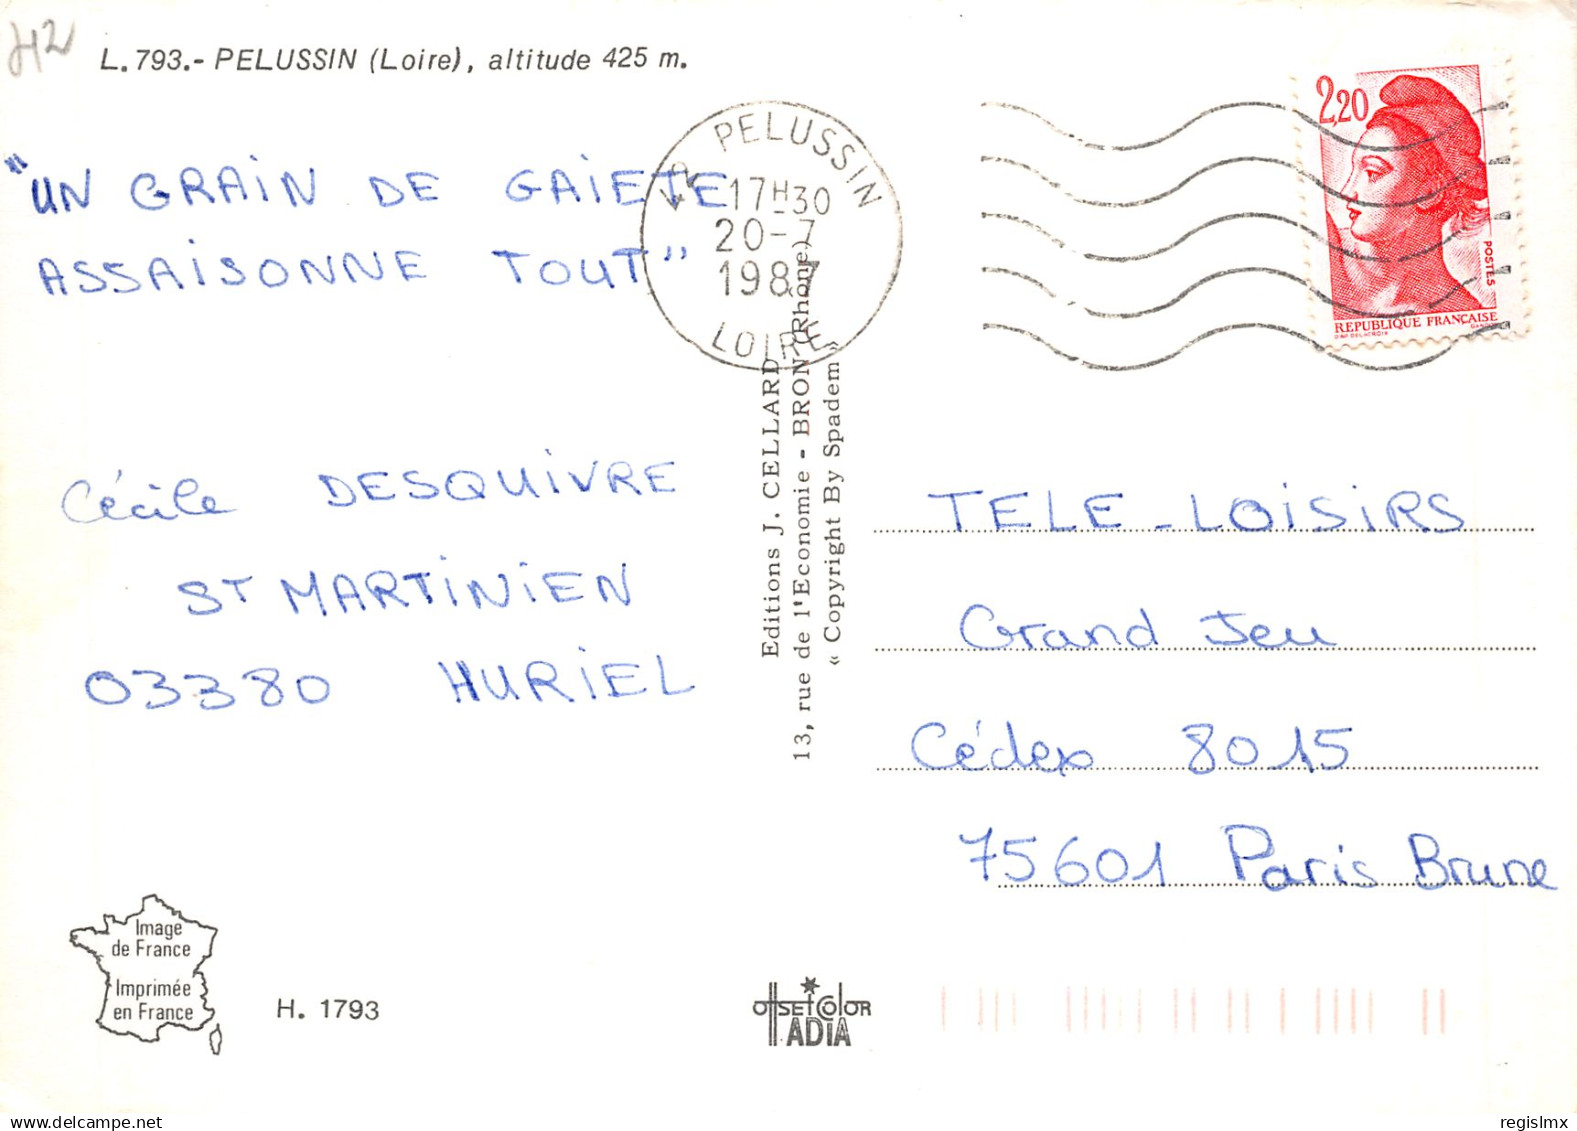 42
L. 793.- PELUSSIN (Loire), altitude 425 m.
"UN GRAIN DE GAIETE
ASSAISONNE TOUT"
42 PELUSSIN
17H30
20-7
1987
LOIRE
2,20
POSTES
REPUBLIQUE FRANÇAISE
Cécile DESQUIVRE
ST MARTINIEN
03380 HURIEL
Editions J. CELLARD
13, rue de l'Economie - BRON (Rhône)
« Copyright By Spadem »
TELE-LOISIRS
Grand Jeu
Cédex 8015
75601 Paris Brune
Image
de France
Imprimée
en France
H. 1793
OffSET COlOR
ADIA
regislmx